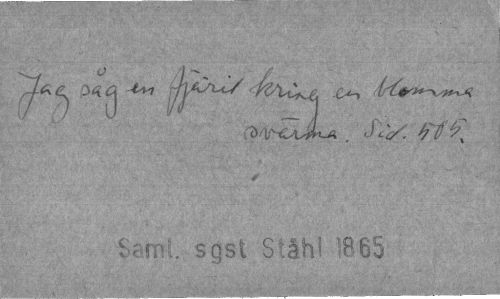 Jag såg en fjäril kring en blomma
svärma. Sid. 505.
Saml. sgst Ståhl 1865